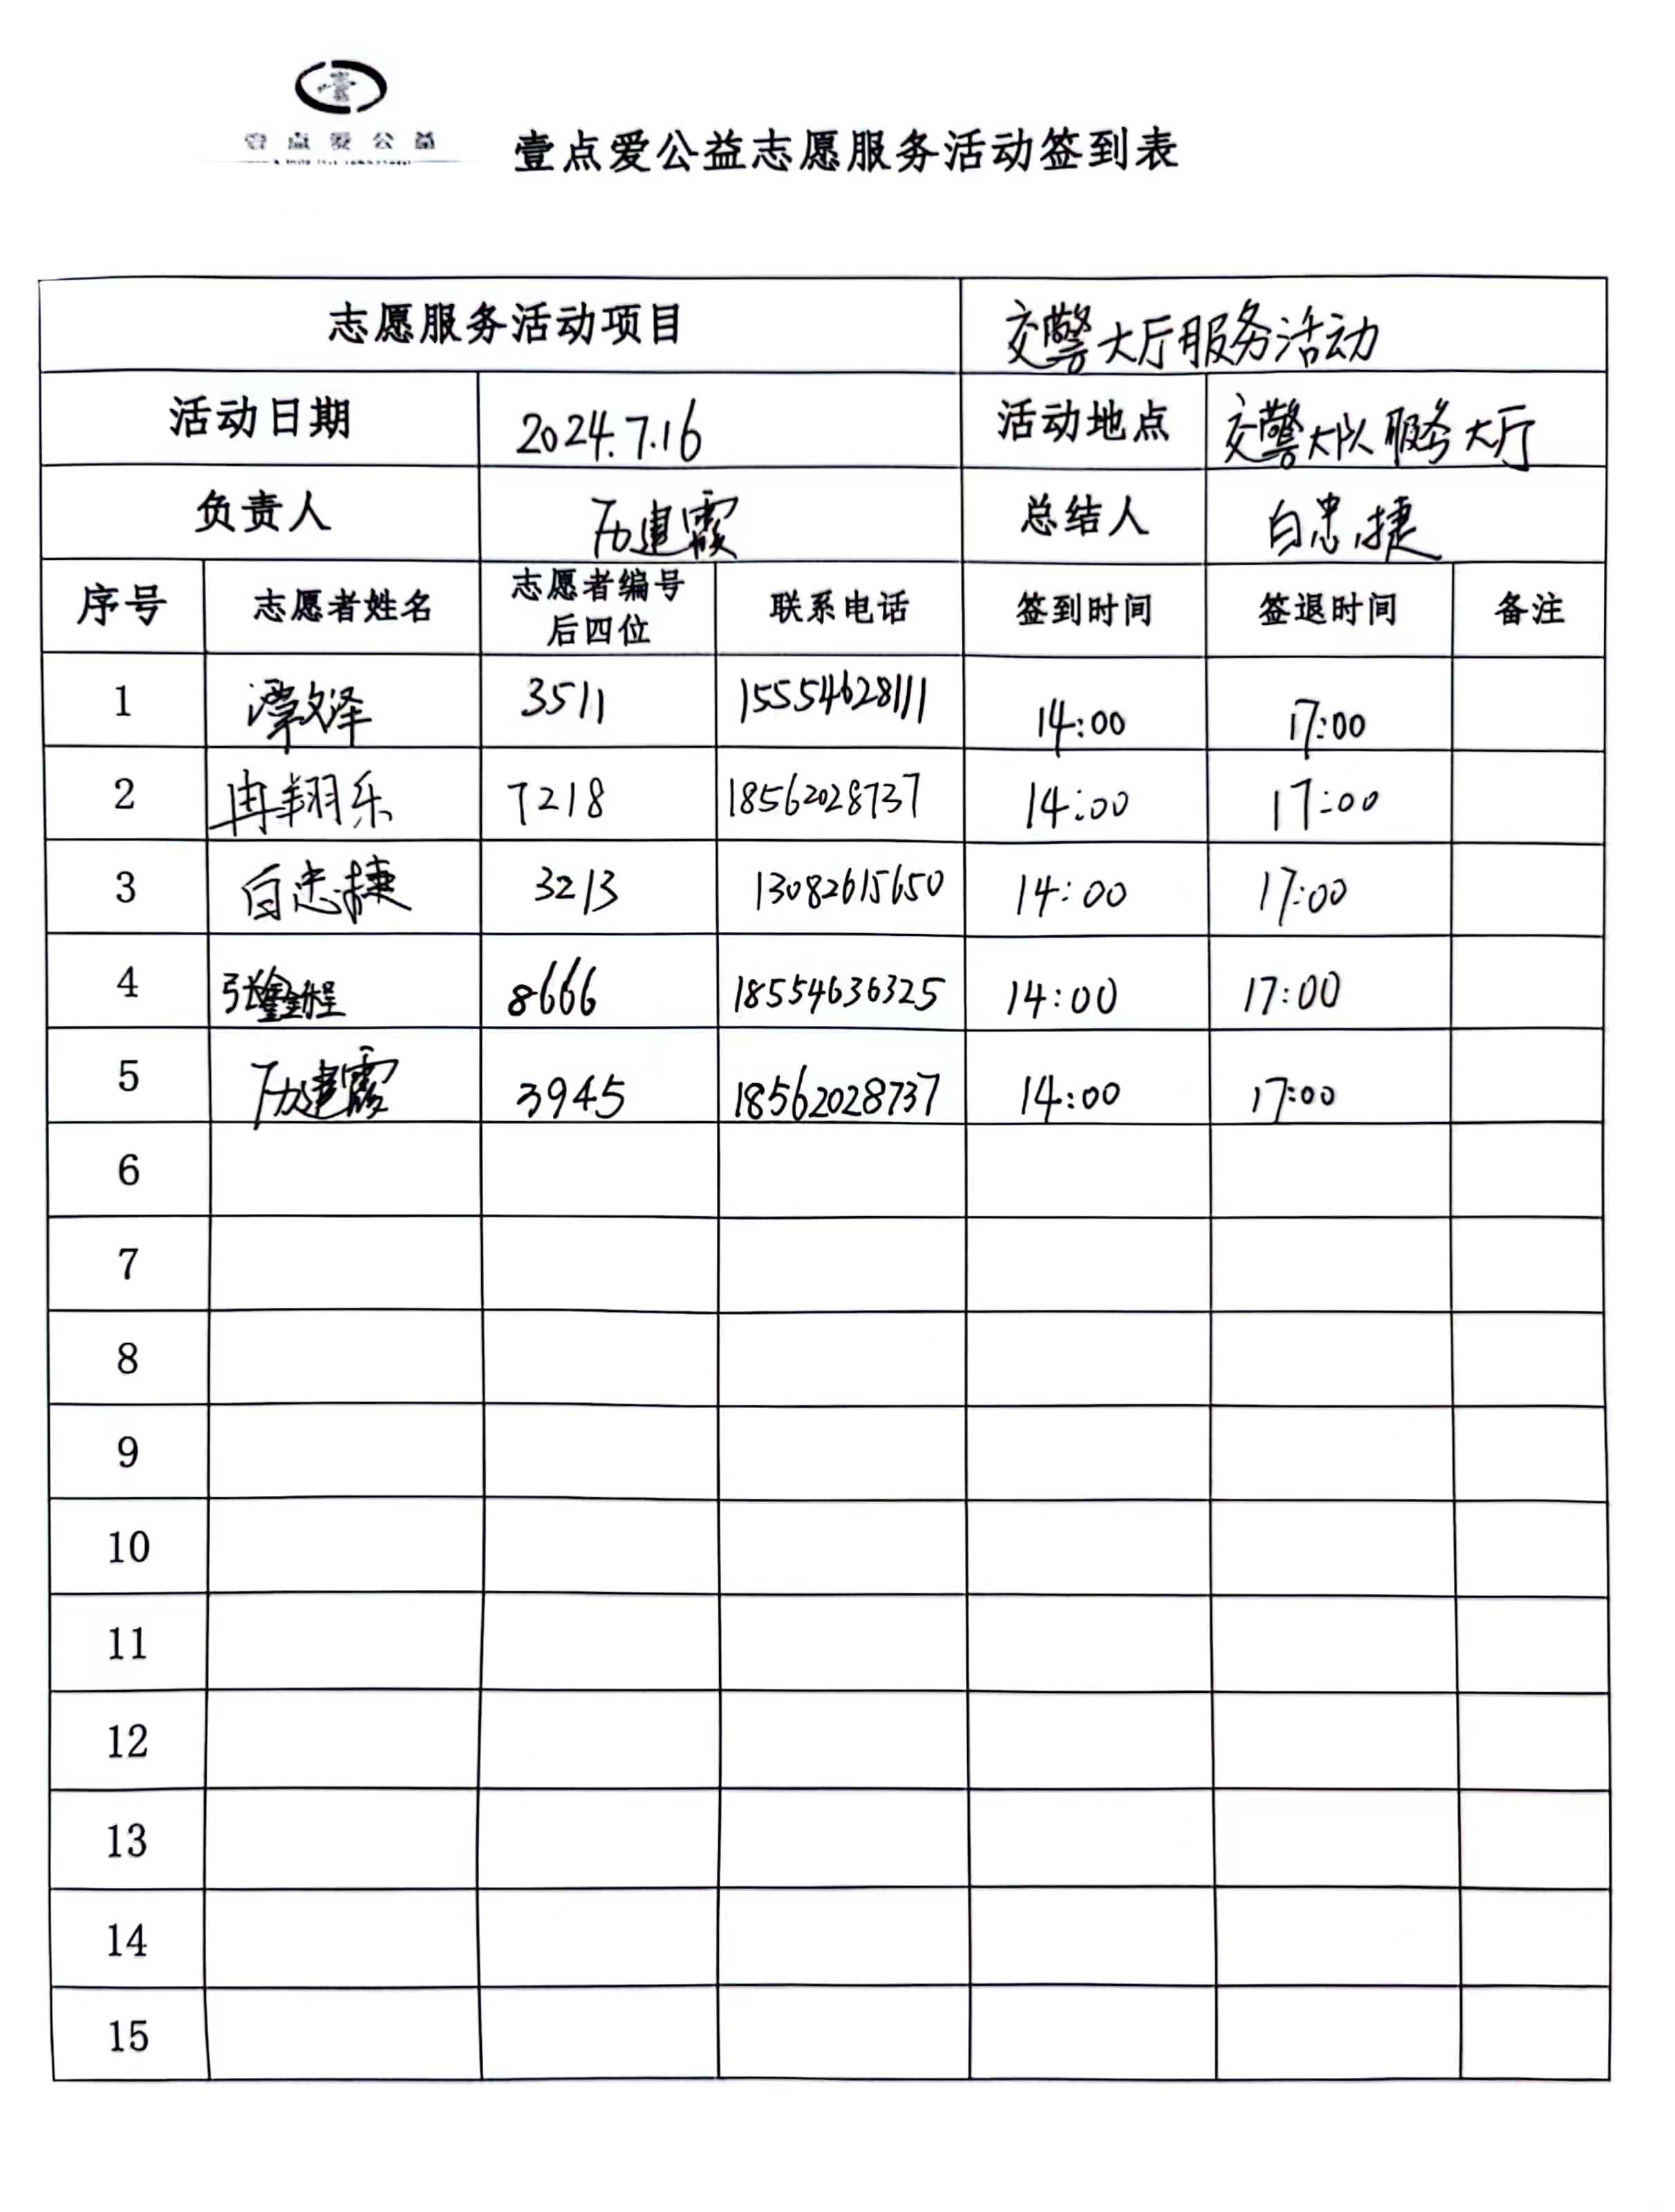 壹点爱公益
壹点爱公益志愿服务活动签到表
志愿服务活动项目 交警大厅服务活动
活动日期 2024.7.16 活动地点 交警大队服务大厅
负责人 历建霞 总结人 白忠捷
序号 志愿者姓名 志愿者编号后四位 联系电话 签到时间 签退时间 备注
1 谭文泽 3511 15554628111 14:00 17:00
2 冉翔乐 7218 18562028737 14:00 17:00
3 白忠捷 3213 13082615650 14:00 17:00
4 张程 8666 18554636325 14:00 17:00
5 历建霞 3945 18562028737 14:00 17:00
6
7
8
9
10
11
12
13
14
15